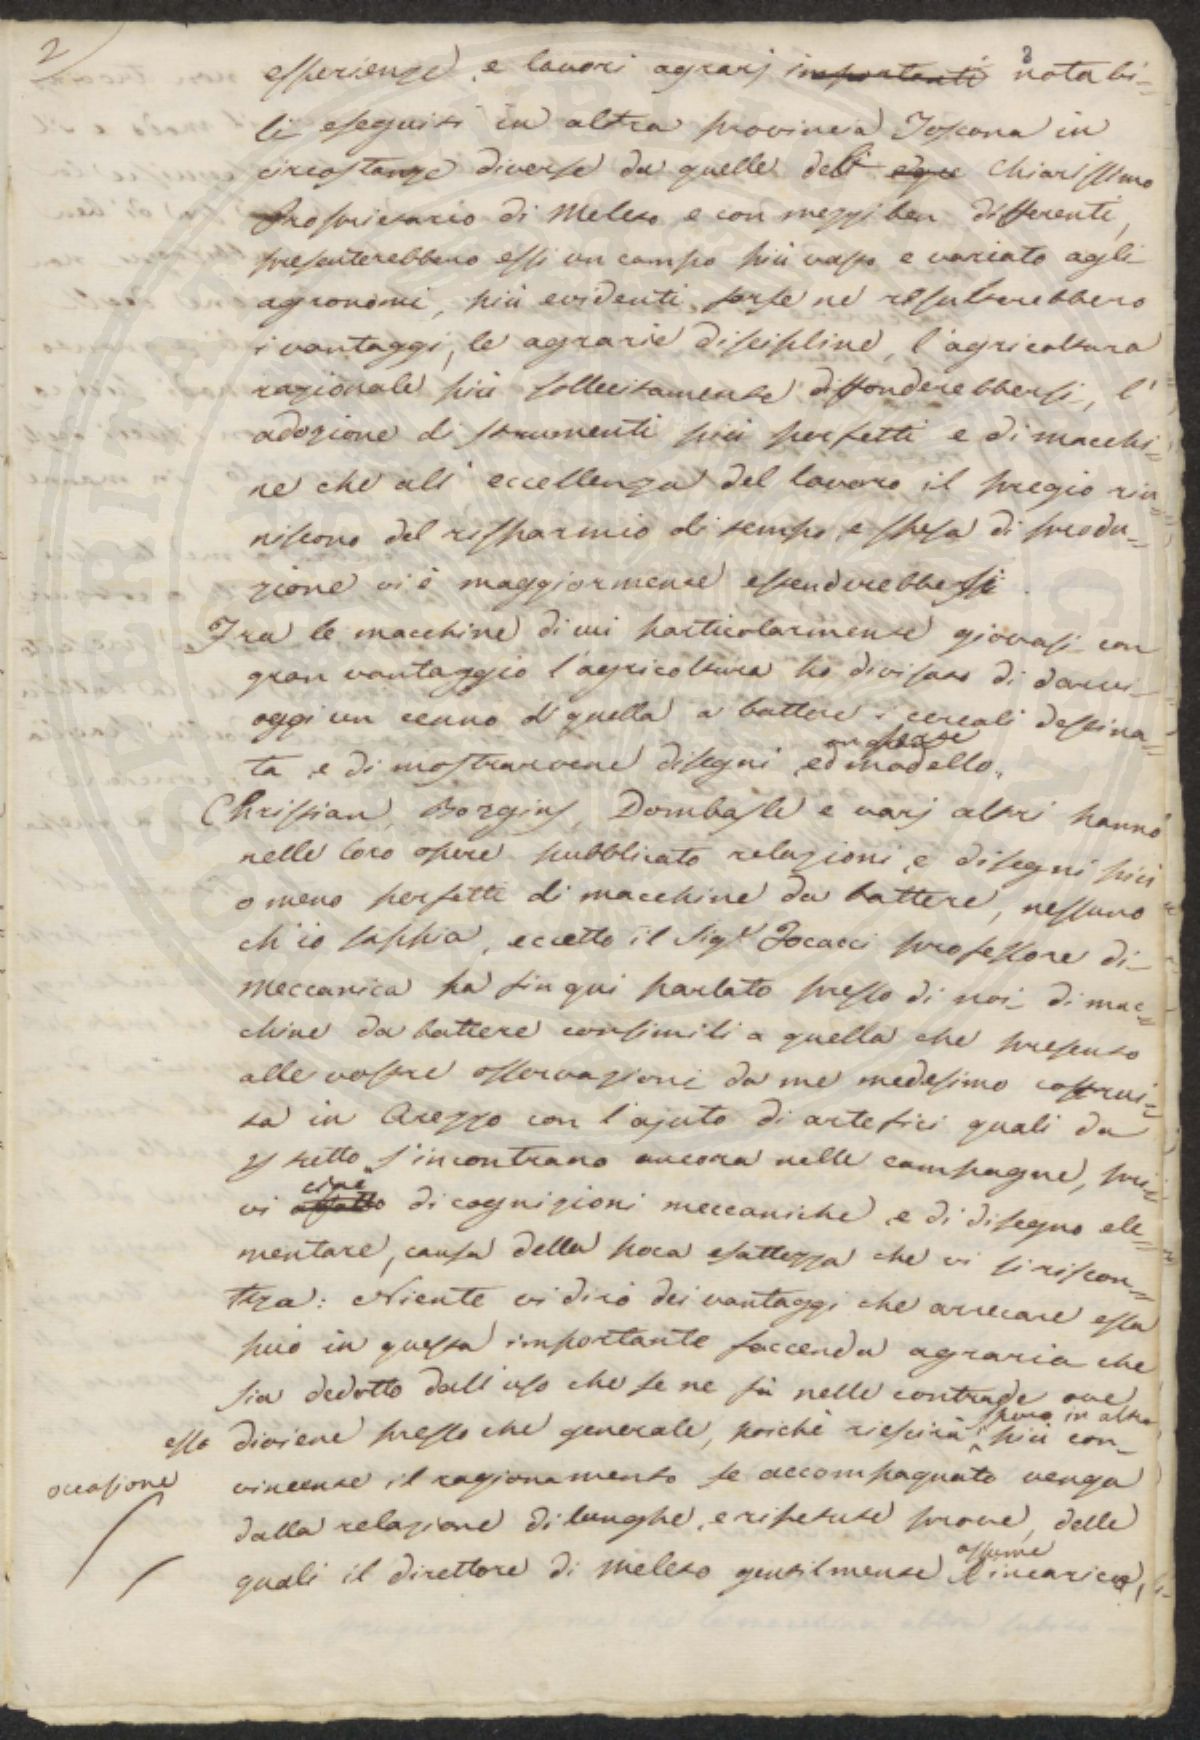 2
esperienze, e lavori agrarj importanti notabi=
li eseguiti in altra provincia Toscana in
circostanze diverse da quelle del chiarissimo
Proprietario di Meleto e con mezzi ben differenti,
presenterebbero essi un campo più vasto e variato agli
agronomi, più evidenti forse ne resulterebbero
i vantaggi, le agrarie discipline, l'agricoltura
razionale più sollecitamente diffonderebbersi, l'
adozione di strumenti più perfetti e di macchi=
ne che all'eccellenza del lavoro il pregio riu=
niscono del risparmio di tempo, e spesa di produ=
zione vi è maggiormente estenderebbesi.
Fra le macchine di cui particolarmente giovasi con
gran vantaggio l'agricoltura ho divisato di darvi
oggi un cenno di quella a battere i cereali destina=
ta, e di mostrarvene disegni, ed modello.
Christian, Borgins, Dombasle e varj altri hanno
nelle loro opere pubblicato relazioni, e disegni più
o meno perfetti di macchine da battere, nessuno
ch'io sappia, eccetto il Sig.r Focacci professore di
meccanica ha fin qui parlato presso di noi di mac=
chine da battere consimili a quella che presento
alle vostre osservazioni da me medesimo costrui=
ta in Arezzo con l'ajuto di artefici quali da
per tutto s'incontrano ancora nelle campagne, pri=
vi affatto cioè di cognizioni meccaniche, e di disegno ele=
mentare, causa della poca esattezza che vi si riscon=
tra: Niente vi dirò dei vantaggi che arrecare essa
può in questa importante faccenda agraria che
sia dedotto dall'uso che se ne fà nelle contrade ove
esso diviene presso che generale, poichè riescirà spero in altra più con=
occasione vincente il ragionamento se accompagnato venga
dalla relazione di lunghe, e ripetute prove, delle
quali il direttore di Meleto gentilmente assume l'incarico,